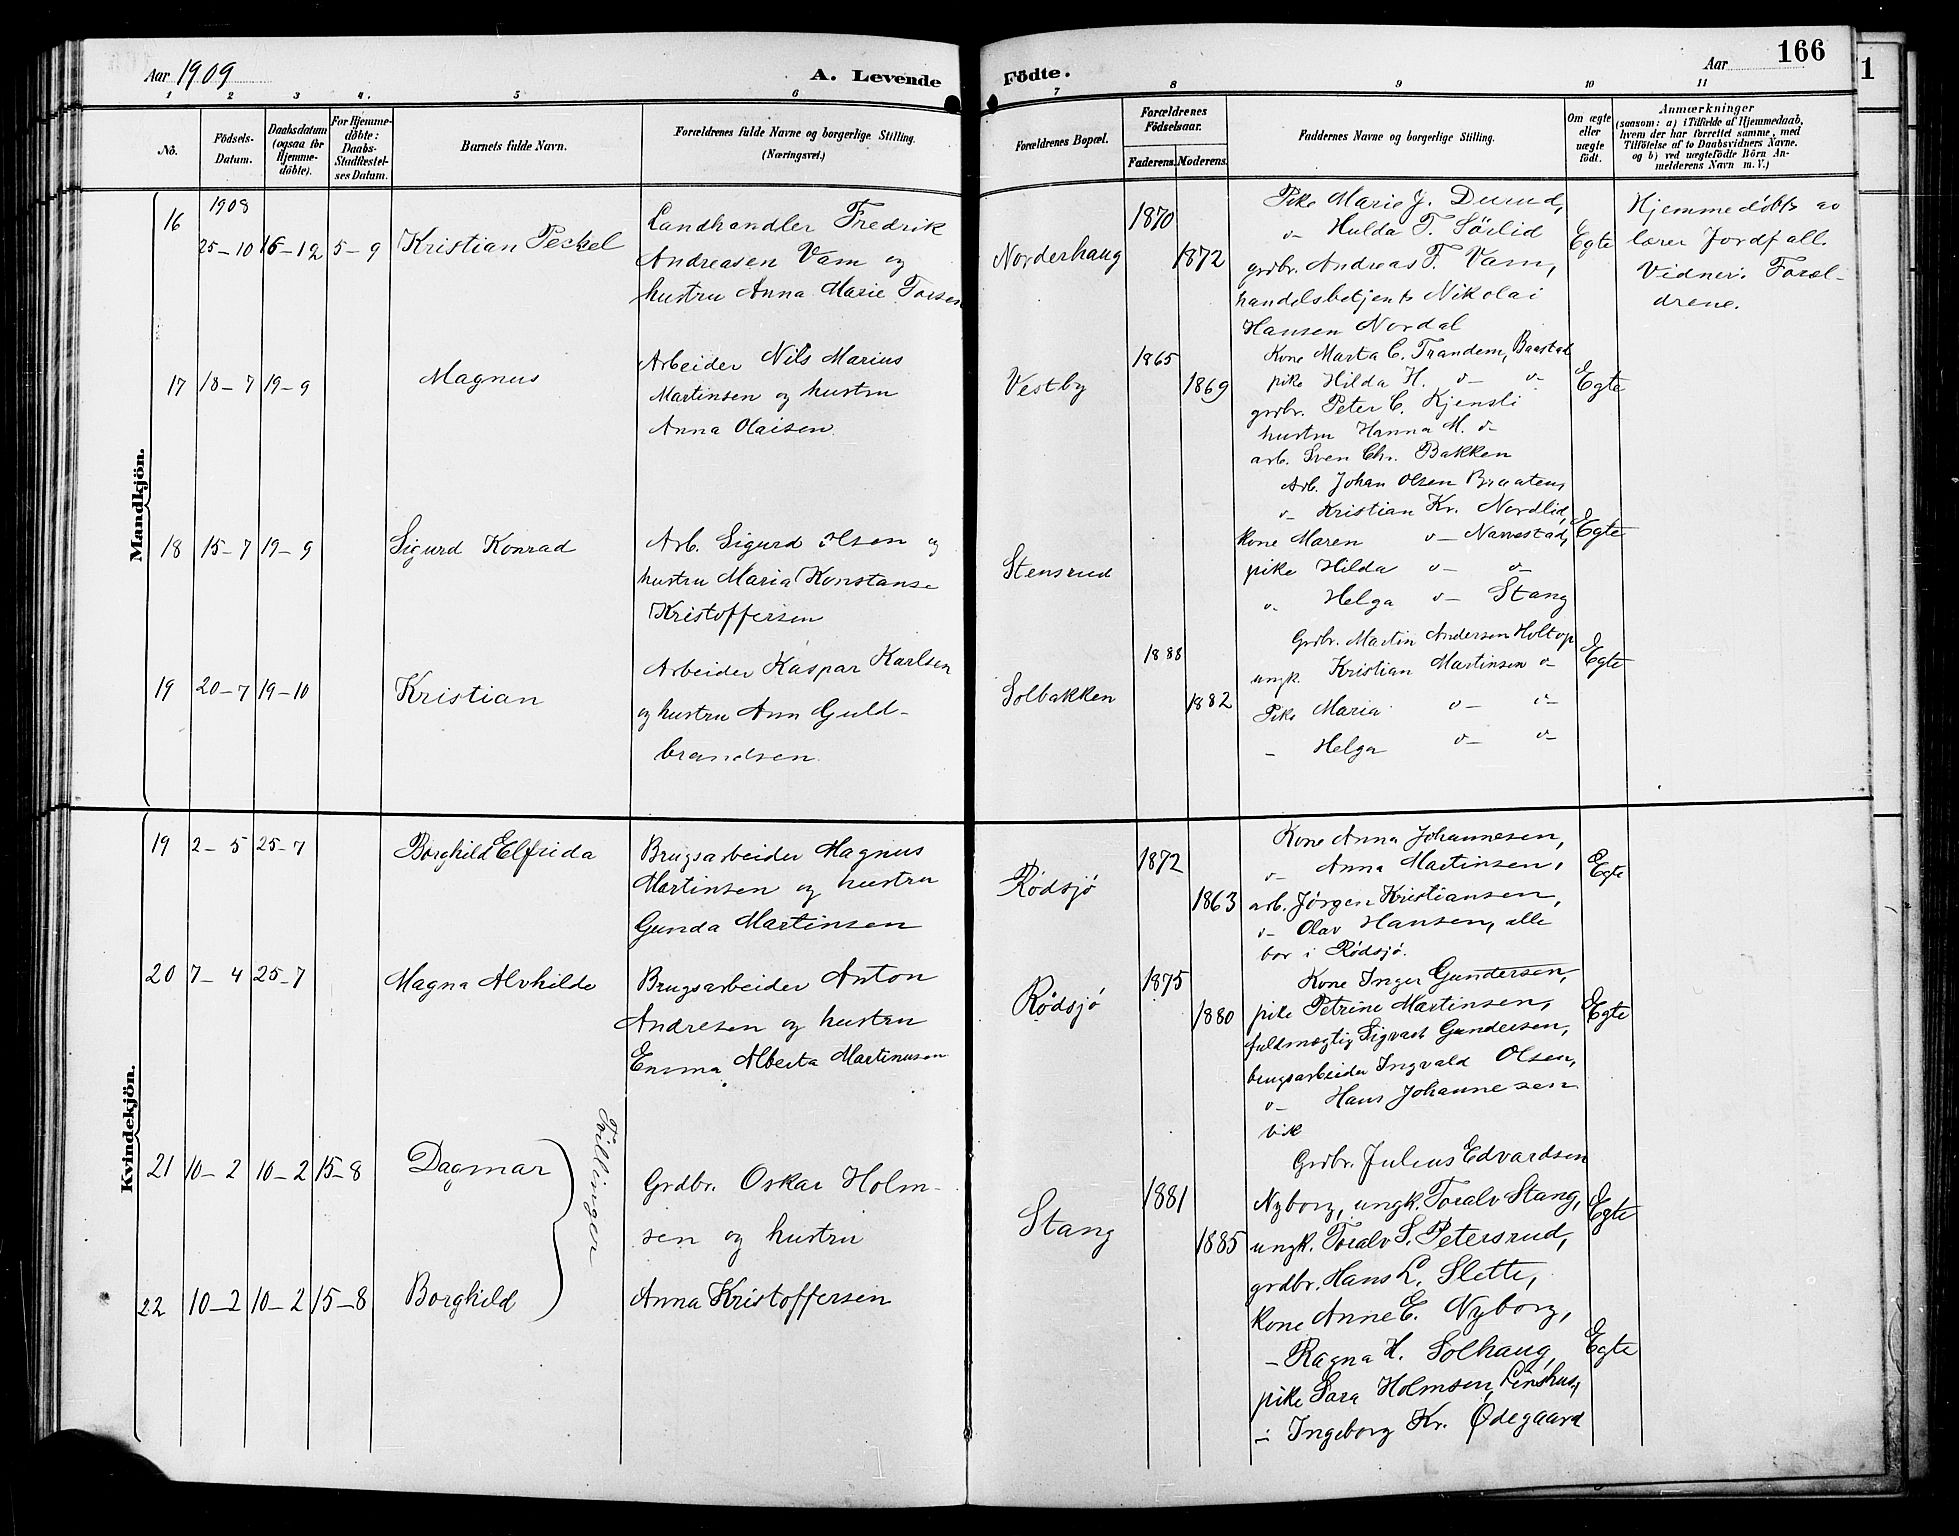 Aar 1909
A. Levende
Födte.
Aar
166
1
1 2 3 4. 5 6 7 8 9 10 11
Nö.
Födsels-Datum.
Daabsdatum (ogsaa for Hjemme-döbte).
For Hjemme-döbte: Daabs-Stadfæstel-ses Datum.
Barnets fulde Navn.
Forældrenes fulde Navne og borgerlige Stilling.
(Næringsvei.)
Forældrenes Bopæl.
Forældrenes Födselsaar.
Faderens.
Moderens.
Faddernes Navne og borgerlige Stilling.
Om ægte eller uægte födt.
Anmærkninger
(saasom: a) i Tilfælde af Hjemmedaab,
hvem der har forrettet samme, med
Tilföielse af to Daabsvidners Navne.
og b) ved uægtefödte Börn An-
melderens Navn m. V.)
Mandkjön.
16 1908 25-10 15-12 5-9 Kristian Peckel
Landhandler Fredrik
Andreasen Vam og
hustru Anna Marie
Norderhaug
1870
1872
Pike Marie J. Durud,
o- Hulda T. Sörlid
grdbr. Andreas F. Vam,
handelsbetjent Nikolai
Hansen Nordal
Egte
Hjemmedöbt av
lærer Jordfall.
Vidner: Foræl-
drene.
17 18-7 19-9 Magnus
Arbeider Nils Marius
Martinsen og hustru
Anna Olaisen.
Vestby
1865
1869
Kone Marta C. Trandem, Baastad
pike Hilda H. o- o-
grdbr. Peter C. Kjensli
hustru Hanna M. o-
arb. Sven Chr. Bakken
Egte
18 15-7 19-9 Sigurd Konrad
Arb. Sigurd Olsen og
hustru Maria Konstanse
Kristoffersen
Stensrud
Arb. Johan Olsen Braaten,
o- Kristian Kr. Nordlid,
kone Maren o- Narvestad,
pike Hilda o- o-
o. Helga o- Stang
Egte
19 20-7 19-10 Kristian
Arbeider Kaspar Karlsen
og hustru Ann Guld-
brandsen.
Solbakken
1888
1882
Grdbr. Martin Andersen Holtop
ungk. Kristian Martinsen o-
Pike Maria o- o-
- Helga o- o-
Egte
Kvindekjön.
19 2-5 25-7 Borghild Elfrida
Brugsarbeider Magnus
Martinsen og hustru
Gunda Martinsen
Rödsjö
1872
1863
Kone Anna Johannesen,
o- Anna Martinsen,
arb. Jörgen Kristiansen,
o- Olav Hansen, alle
bor i Rödsjö.
Egte
20 7-4 25-7 Magna Alvhilde
Brugsarbeider Anton
Andresen og hustru
Emma Alberta Martinusen
Rödsjö
1875
1880
Kone Inger Gundersen,
pike Petrine Martinsen,
fuldmægtig Sigvart Gundersen,
brugsarbeider Ingvald Olsen,
o- Hans Johannesen
Vik
Egte
21 10-2 10-2 15-8 Dagmar
Tvillinger
22 10-2 10-2 15-8 Borghild
Grdbr. Oskar Holm-
sen og hustru
Anna Kristoffersen
Stang
1881
1885
Grdbr. Julius Edvardsen
Nyborg, ungk. Toralv Stang,
ungk. Toralv S. Petersrud,
grdbr. Hans L. Slette,
kone Anne E. Nyborg,
- Ragna H. Solhaug,
pike Sara Holmsen,
- Ingeborg Kr. Ödegaard
Egte
Egte